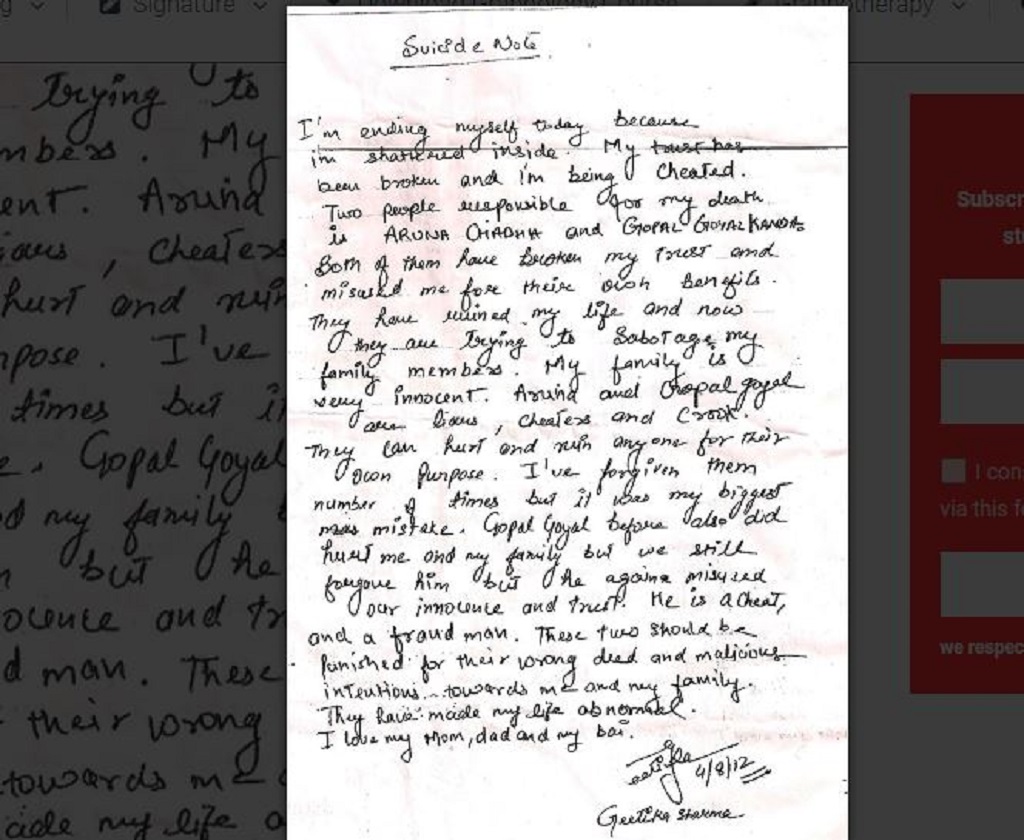 Signature
therapy
Suicide Note
I'm ending myself today because
i'm shattered inside. My trust has
been broken and i'm being cheated.
Two people responsible for my death
is ARUNA CHADHA and GOPAL GOYAL KANDA.
Both of them have broken my trust and
misused me for their own benefits.
They have ruined my life and now
they are trying to Sabotage my
family members. My family is
very innocent. Aruna and Gopal goyal
are liars, cheaters and Crook.
They can hurt and ruin anyone for their
own Purpose. I've forgiven them
number of times but it was my biggest
mistake. Gopal Goyal before also did
hurt me and my family but we still
forgave him but he again misused
our innocence and trust. He is a cheat,
and a fraud man. These two should be
punished for their wrong deed and malicious
intentions towards me and my family.
They have made my life abnormal.
I love my Mom, dad and my bai.
4/8/12
Geetika Sharma
trying to
My
Aruna
, cheaters
hurt and ruin
I've
times but
Gopal Goyal
my family
but he
and
man. These
their wrong
towards me
my life
Subscr
I con
via this f
we respec